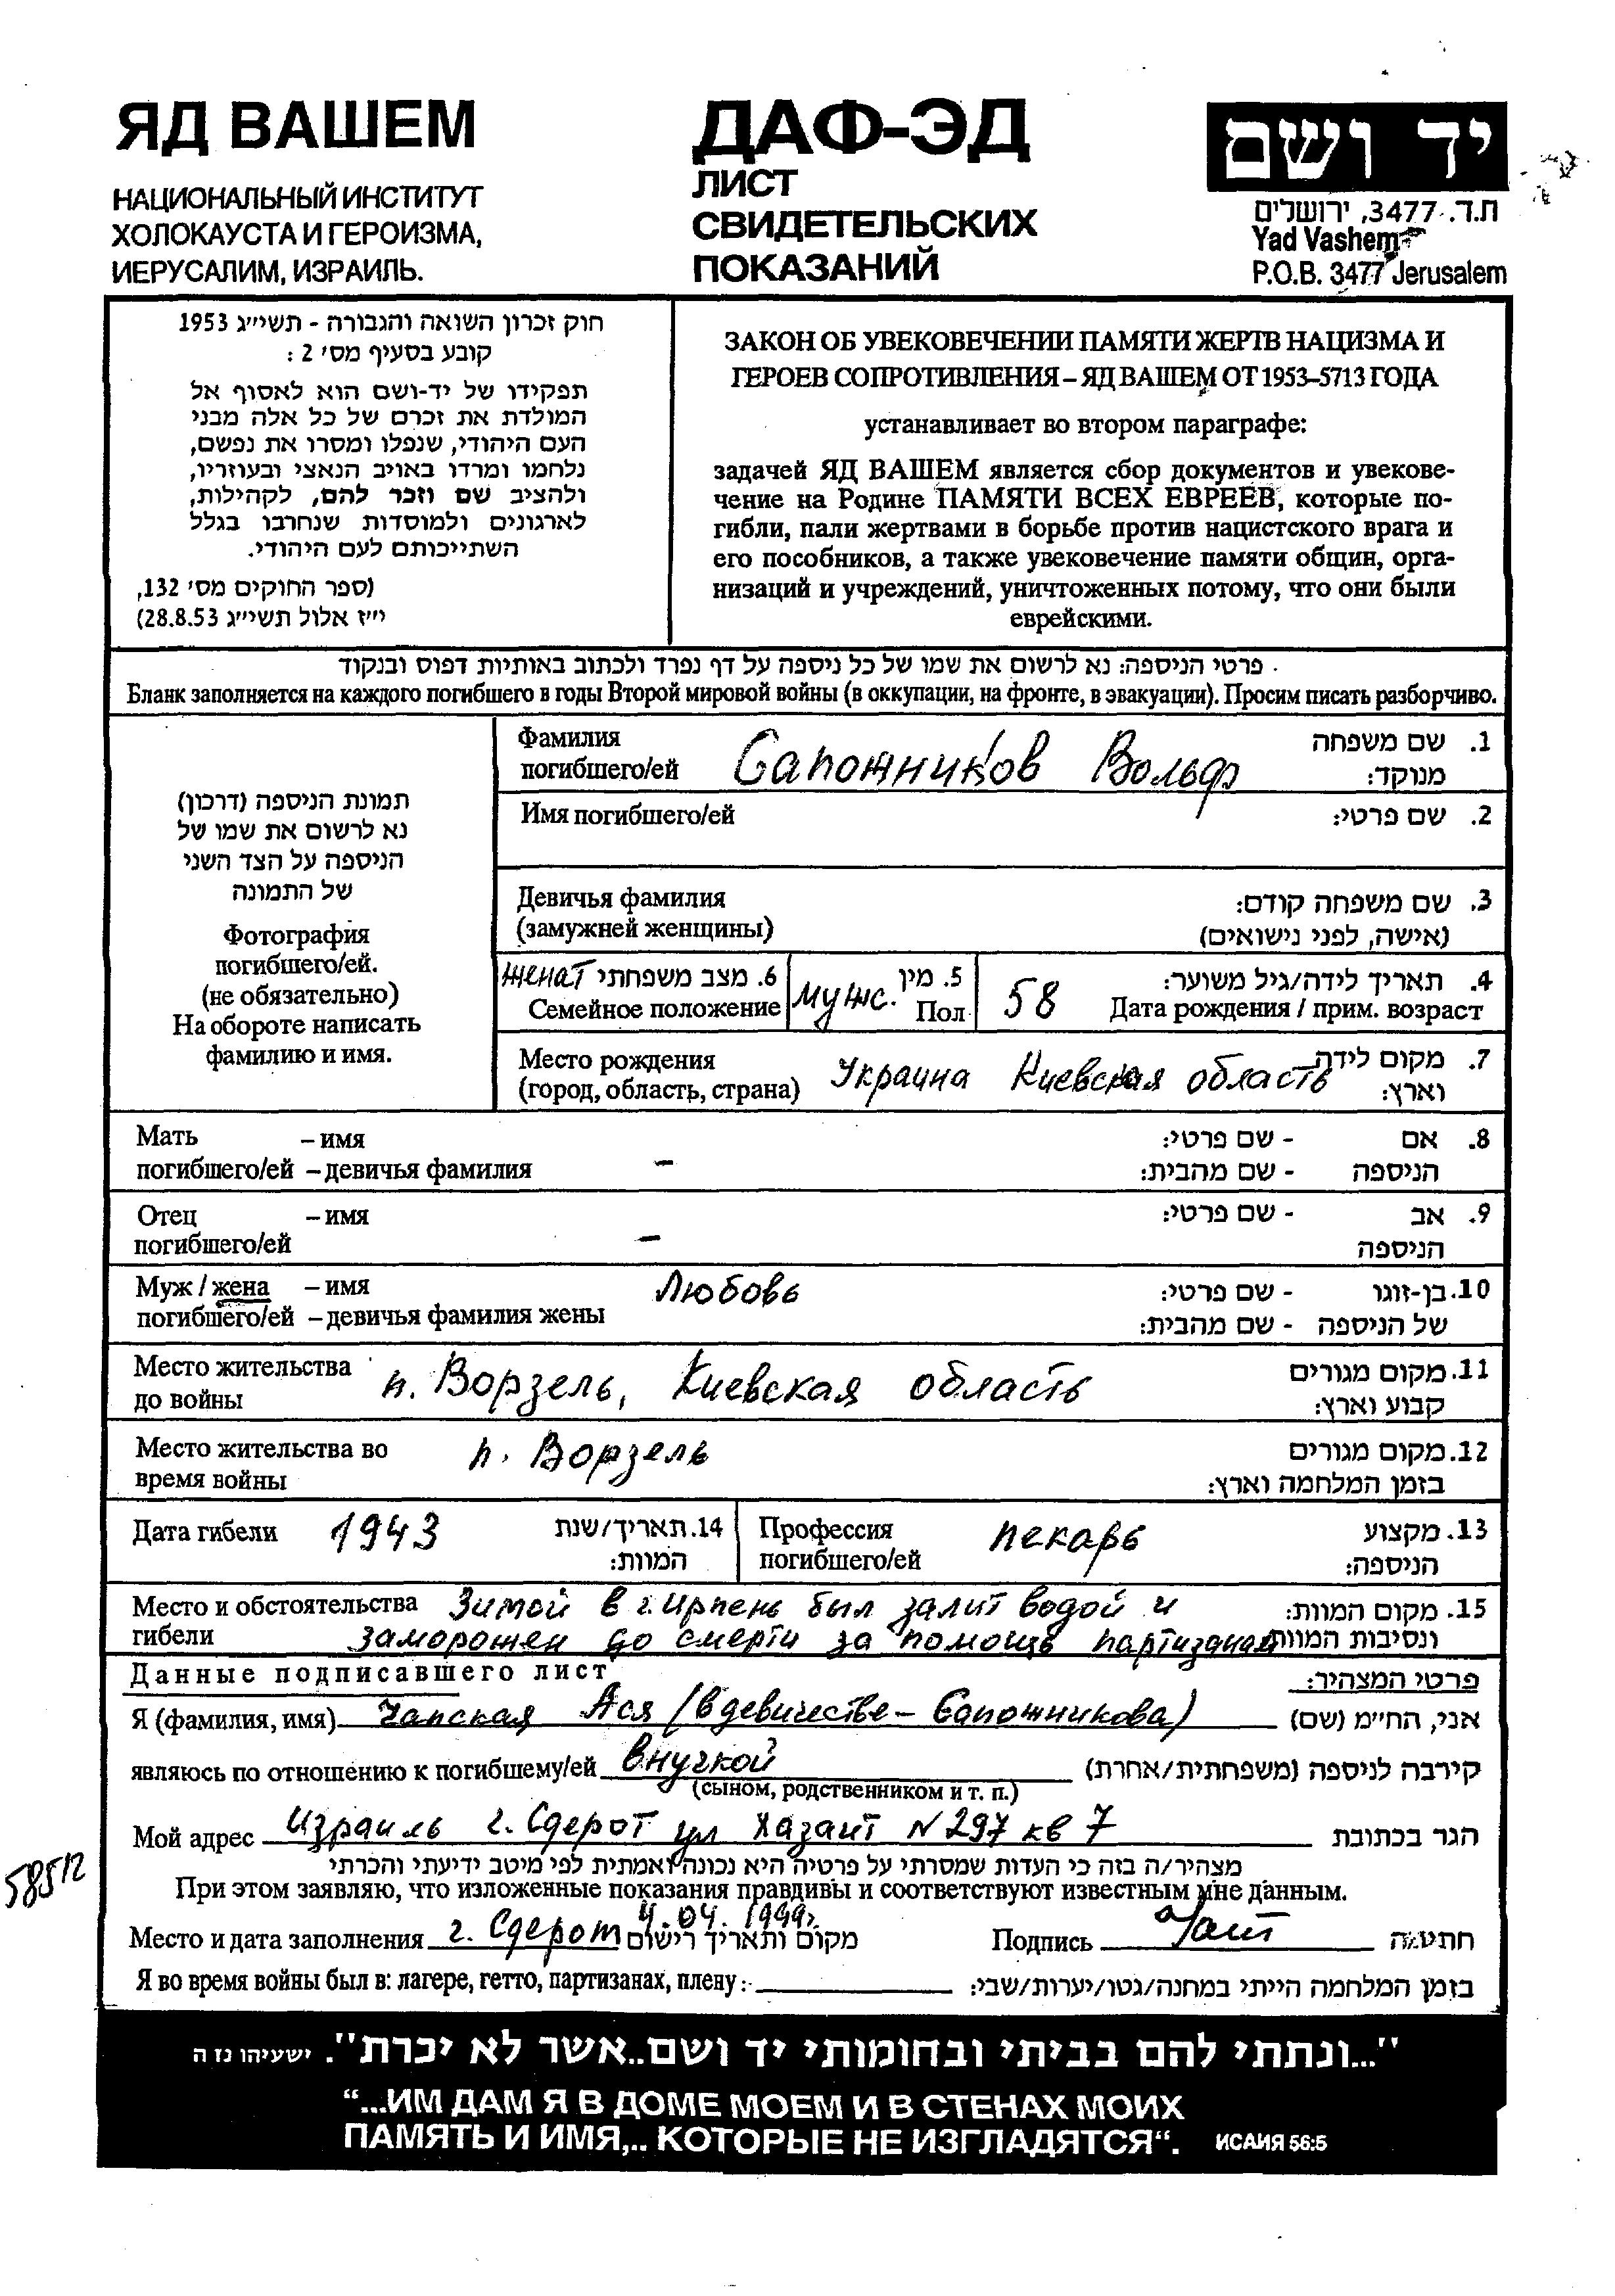 ЯД ВАШЕМ
НАЦИОНАЛЬНЫЙ ИНСТИТУТ
ХОЛОКАУСТА И ГЕРОИЗМА,
ИЕРУСАЛИМ, ИЗРАИЛЬ.
ДАФ-ЭД
ЛИСТ
СВИДЕТЕЛЬСКИХ
ПОКАЗАНИЙ
יד ושם
ת.ד. 3477, ירושלים
Yad Vashem
P.O.B. 3477 Jerusalem
חוק זכרון השואה והגבורה - תשי״ג 1953
קובע בסעיף מס׳ 2 :
תפקידו של יד-ושם הוא לאסוף אל
המולדת את זכרם של כל אלה מבני
העם היהודי, שנפלו ומסרו את נפשם,
נלחמו ומרדו באויב הנאצי ובעוזריו,
ולהציב שם וזכר להם, לקהילות,
לארגונים ולמוסדות שנחרבו בגלל
השתייכותם לעם היהודי.
(ספר החוקים מס׳ 132,
י״ז אלול תשי״ג 28.8.53)
ЗАКОН ОБ УВЕКОВЕЧЕНИИ ПАМЯТИ ЖЕРТВ НАЦИЗМА И
ГЕРОЕВ СОПРОТИВЛЕНИЯ – ЯД ВАШЕМ ОТ 1953–5713 ГОДА
устанавливает во втором параграфе:
задачей ЯД ВАШЕМ является сбор документов и увекове-
чение на Родине ПАМЯТИ ВСЕХ ЕВРЕЕВ, которые по-
гибли, пали жертвами в борьбе против нацистского врага и
его пособников, а также увековечение памяти общин, орга-
низаций и учреждений, уничтоженных потому, что они были
еврейскими.
פרטי הניספה: נא לרשום את שמו של כל ניספה על דף נפרד ולכתוב באותיות דפוס ובנקוד
Бланк заполняется на каждого погибшего в годы Второй мировой войны (в оккупации, на фронте, в эвакуации). Просим писать разборчиво.
תמונת הניספה (דרכון)
נא לרשום את שמו של
הניספה על הצד השני
של התמונה
Фотография
погибшего/ей.
(не обязательно)
На обороте написать
фамилию и имя.
Фамилия
погибшего/ей Сапожников Вольф
1. שם משפחה
מנוקד:
Имя погибшего/ей 2. שם פרטי:
Девичья фамилия
(замужней женщины)
3. שם משפחה קודם:
(אישה, לפני נישואים)
женат 6. מצב משפחתי
Семейное положение
муж. 5. מין
Пол
58
4. תאריך לידה/גיל משוער:
Дата рождения / прим. возраст
Место рождения
(город, область, страна) Украина Киевская область
7. מקום לידה
וארץ:
Мать – имя
погибшего/ей – девичья фамилия –
8. אם - שם פרטי:
הניספה - שם מהבית:
Отец – имя
погибшего/ей –
9. אב - שם פרטי:
הניספה
Муж / жена – имя Любовь
погибшего/ей – девичья фамилия жены
10. בן-זוגו - שם פרטי:
של הניספה - שם מהבית:
Место жительства
до войны п. Ворзель, Киевская область
11. מקום מגורים
קבוע וארץ:
Место жительства во
время войны п. Ворзель
12. מקום מגורים
בזמן המלחמה וארץ:
Дата гибели 1943
14. תאריך/שנת
המוות:
Профессия
погибшего/ей пекарь
13. מקצוע
הניספה:
Место и обстоятельства Зимой в г. Ирпень был залит водой и
гибели заморожен до смерти за помощь партизанам
15. מקום המוות:
ונסיבות המוות
Данные подписавшего лист פרטי המצהיר:
Я (фамилия, имя) Чапская Ася (в девичестве – Сапожникова) אני, הח״מ (שם)
являюсь по отношению к погибшему/ей внучкой קירבה לניספה (משפחתית/אחרת)
(сыном, родственником и т. п.)
Мой адрес Израиль г. Сдерот ул Хазаит N 297 кв 7 הגר בכתובת
מצהיר/ה בזה כי העדות שמסרתי על פרטיה היא נכונה ואמתית לפי מיטב ידיעתי והכרתי
58512
При этом заявляю, что изложенные показания правдивы и соответствуют известным мне данным.
Место и дата заполнения г. Сдерот 4.04.1999г. מקום ותאריך רישום Подпись חתימה
Я во время войны был в: лагере, гетто, партизанах, плену: בזמן המלחמה הייתי במחנה/גטו/יערות/שבי:
"...ונתתי להם בביתי ובחומותי יד ושם..אשר לא יכרת". ישעיהו נז ה
“...ИМ ДАМ Я В ДОМЕ МОЕМ И В СТЕНАХ МОИХ
ПАМЯТЬ И ИМЯ,.. КОТОРЫЕ НЕ ИЗГЛАДЯТСЯ“. ИСАИЯ 56:5